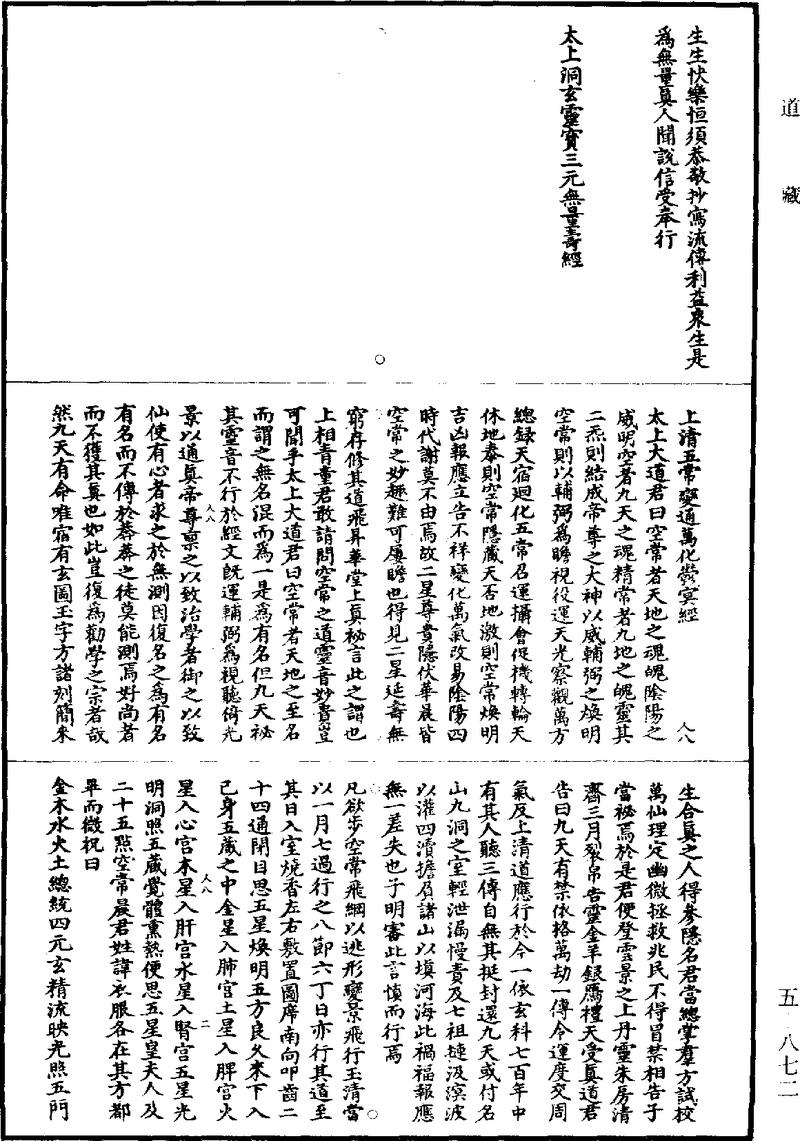 道藏
生生快樂恒須恭敬抄寫流傳利益衆生是
爲無量眞人聞說信受奉行
太上洞玄靈寶三元無量壽經
上清五常變通萬化鬱冥經
太上大道君曰空常者天地之魂魄陰陽之
威明空者九天之魂精常者九地之魄靈其
二炁則結成帝尊之大神以威輔弼之煥明
空常則以輔弼爲瞻視役運天光察觀萬方
總錄天宿迴化五常召運攝會促機轉輪天
休地泰則空常隱藏天否地激則空常煥明
吉凶報應立告不祥變化萬氣改易陰陽四
時代謝莫不由焉故二星尊貴隱伏華晨皆
空常之妙趣難可屢瞻也得見二星延壽無
窮存修其道飛昇華堂上眞祕言此之謂也
上相青童君敢請問空常之道靈音妙貴豈
可聞乎太上大道君曰空常者天地之至名
而謂之無名混而爲一是爲有名但九天祕
其靈音不行於經文旣運輔弼爲視聽倚光
景以通眞帝尊稟之以致治學者御之以致
仙使有心者求之於無測因復名之爲有名
有名而不傳於莽莽之徒莫能測焉好尚者
而不獲其眞也如此豈復爲勸學之宗者哉
然九天有命唯宿有玄圖玉字方諸刻簡來
生合眞之人得參隱名君當總掌羣方試校
萬仙理定幽微拯救兆民不得冒禁相告子
當祕焉於是君便登雲景之上丹靈朱房清
齋三月裂帛告靈金羊銀鴈禮天受眞道君
告曰九天有禁依格萬劫一傳今運度交周
氣反上清道應行於今一依玄科七百年中
有其人聽三傳自無其挺封還九天或付名
山九洞之室輕泄漏慢責及七祖摙汲溟波
以灌四瀆擔石諸山以塡河海此禍福報應
無一差失也子明審此言愼而行焉
凡欲步空常飛綱以逃形變景飛行玉清當
以一月七過行之八節六丁日亦行其道至
其日入室燒香左右敷置圖席南向叩齒二
十四通閉目思五星煥明五方良久來下入
己身五藏之中金星入肺宮土星入脾宮火
星入心宮木星入肝宮水星入腎宮五星光
明洞照五藏覺體熏熱便思五星皇夫人及
二十五點空常晨君姓諱衣服各在其方都
畢而微祝曰
金木水火土總統四元玄精流映光照五門
五·八七二